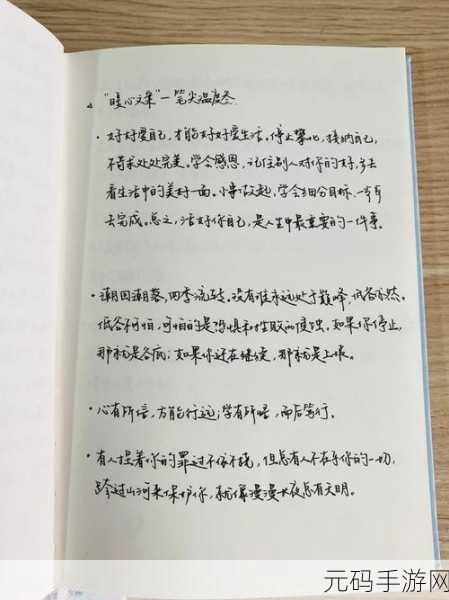 “暖心文案”一笔尖温度
· 好好爱自己，才能好好爱生活。停止攀比，接纳自己，
不苛求处处完美。学会感恩，记住别人对你的好，多去
看生活中的美好一面。小事做起，学会细分目标，一步步
去完成。总之，活好你自己，是人生中最重要的一件事。
· 潮因潮落，四季流转。没有谁永远处于巅峰，低谷亦然。
低谷不可怕，可怕的是恐惧和性败的侵蚀。如果你停止，
那就是谷底；如果你还在继续，那就是上坡。
· 心有所信，方能行远；学有所悟，而后笃行。
· 有人捏着你的罪过不依不挠，但总有人不在乎你的一切，
跨过山河来保护你，就像漫漫长夜总有天明。
元码手游网